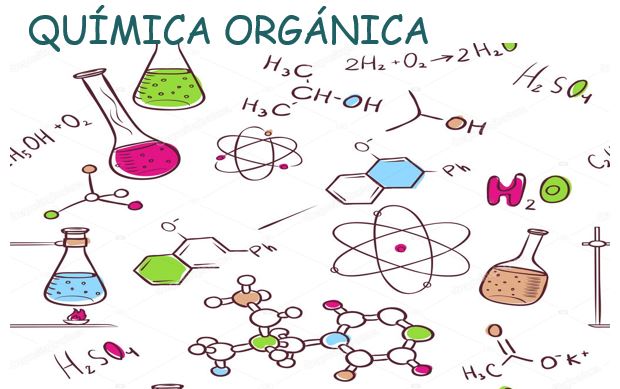 QUÍMICA ORGÁNICA
H₃C
CH-OH
H₃C
2H₂+O₂→2H₂O
H₂SO₄
OH
H₅OH+O₂
O⁻
Ph
H₂O
O⁻
Ph
H₂SO₄
H₃C
O⁻K⁺